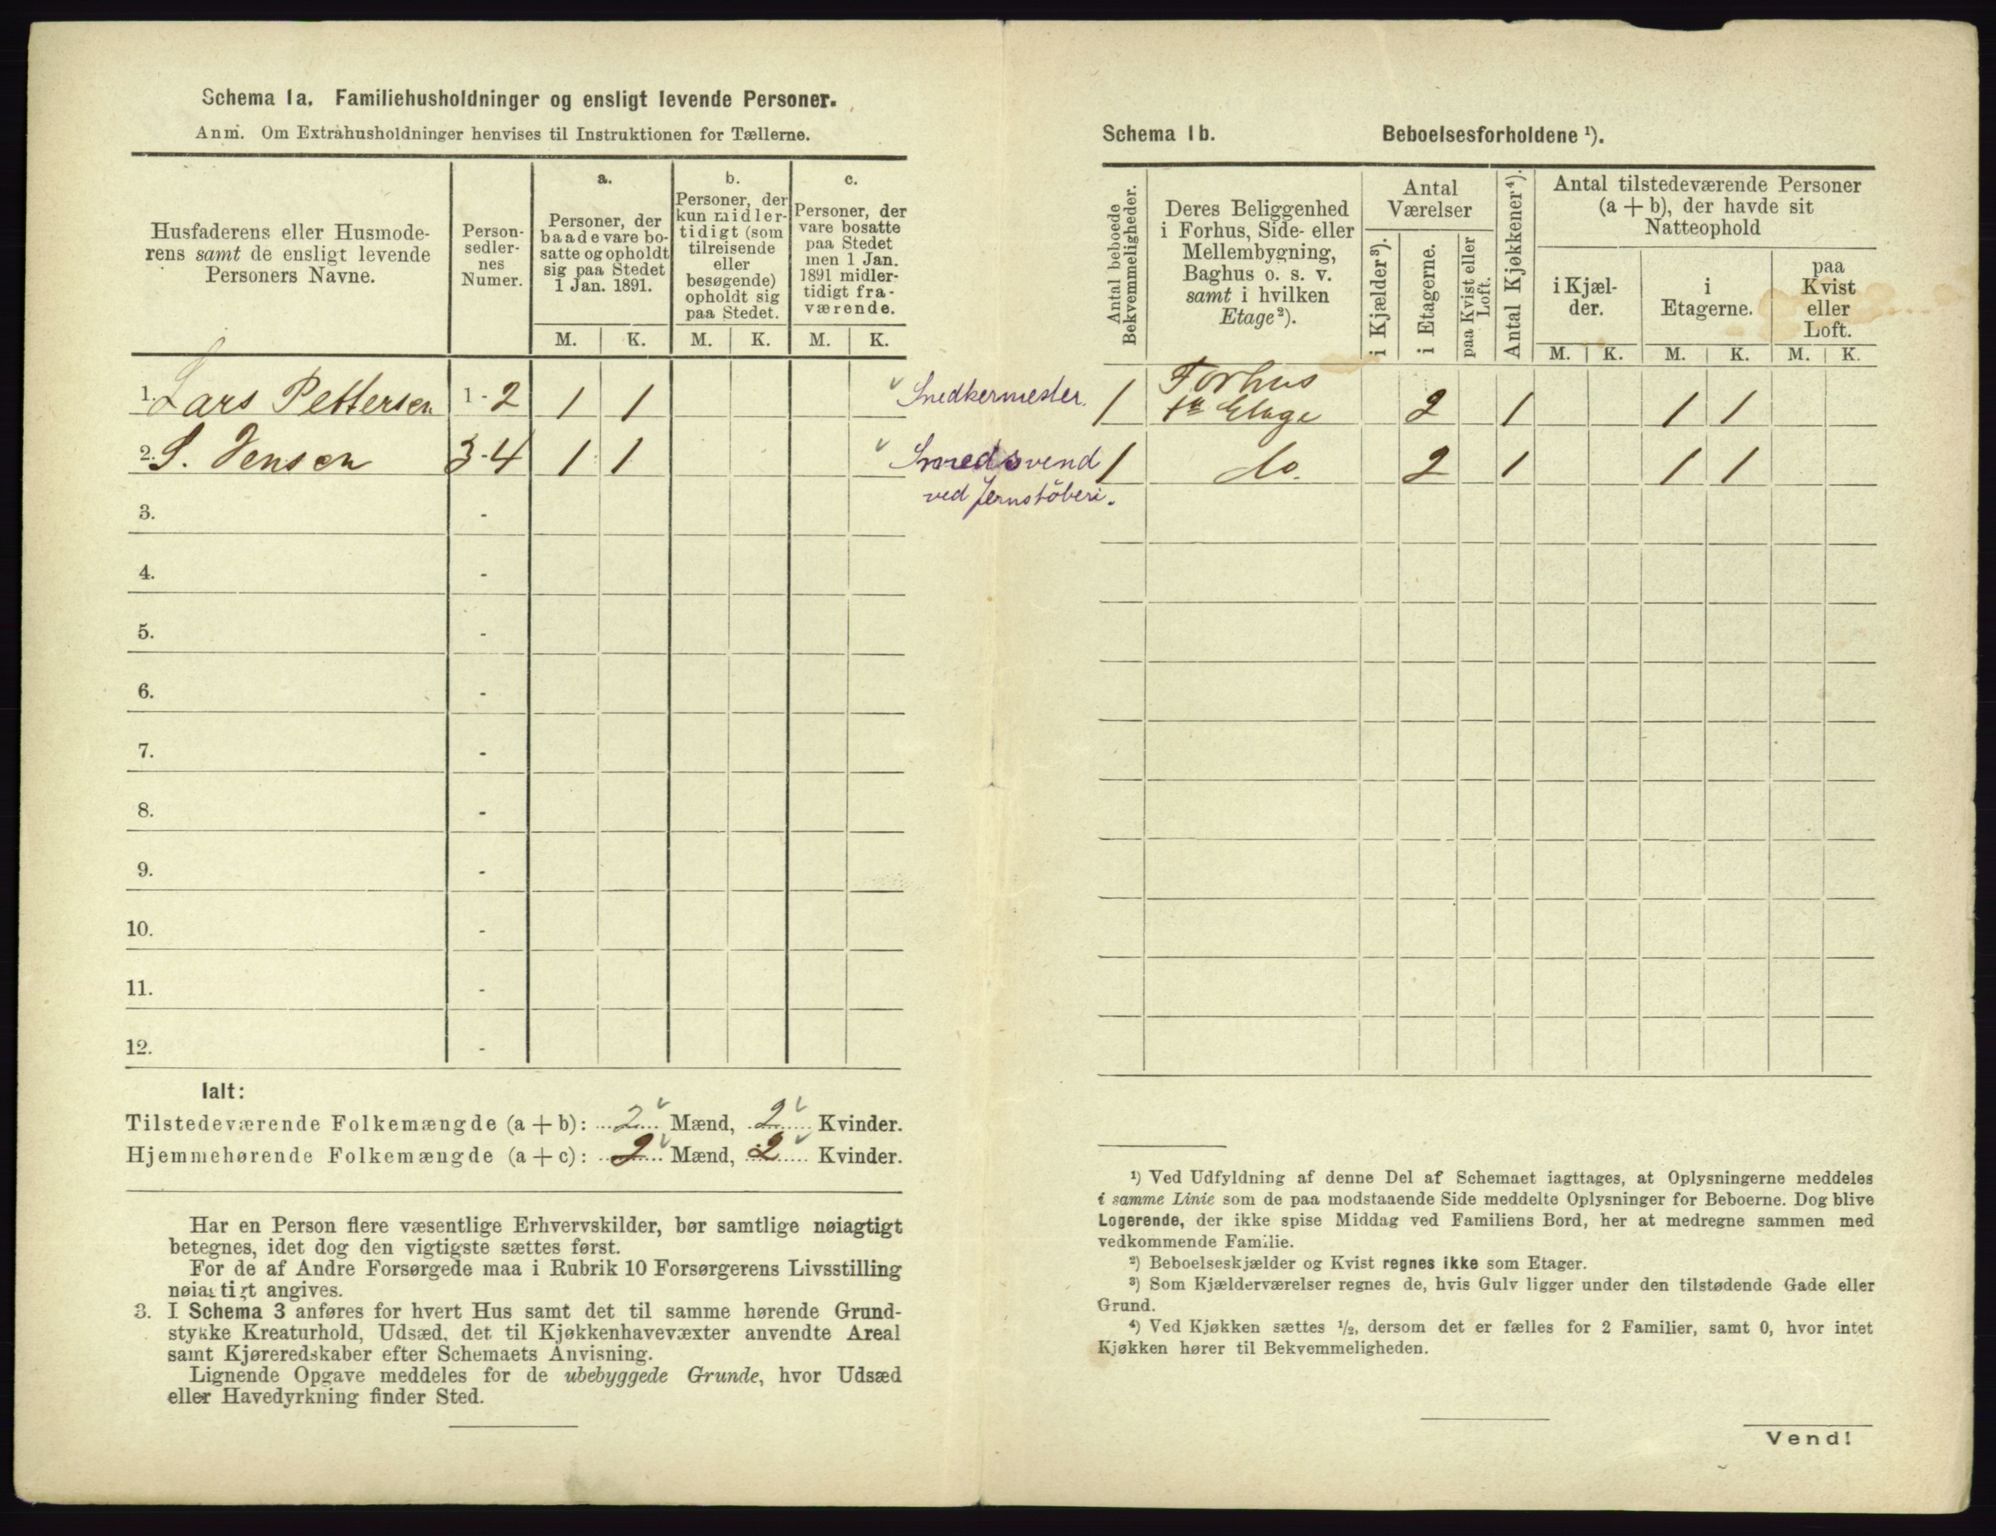 Schema 1a. Familiehusholdninger og ensligt levende Personer.
Anm. Om Extrahusholdninger henvises til Instruktionen for Tællerne.
Husfaderens eller Husmode-
rens samt de ensligt levende
Personers Navne.
Person-
sedler-
nes
Numer.
a.
Personer, der
baade vare bo-
satte og opholdt
sig paa Stedet
1 Jan. 1891.
b.
Personer, der
kun midler-
tidigt (som
tilreisende
eller
besøgende)
opholdt sig
paa Stedet.
c.
Personer, der
vare bosatte
paa Stedet
men 1 Jan.
1891 midler-
tidigt fra-
værende.
M. K. M. K. M. K.
1. Lars Pettersen 1-2 1 1 Snedkermester.
2. S. Jensen 3-4 1 1 Smedsvend
ved Jernstöberi.
3. -
4. -
5. -
6. -
7. -
8. -
9. -
10. -
11. -
12. -
Ialt:
Tilstedeværende Folkemængde (a + b): 2 Mænd, 2 Kvinder.
Hjemmehørende Folkemængde (a + c): 2 Mænd, 2 Kvinder.
Har en Person flere væsentlige Erhvervskilder, bør samtlige nøiagtigt
betegnes, idet dog den vigtigste sættes først.
For de af Andre Forsørgede maa i Rubrik 10 Forsørgerens Livsstilling
nøiagtigt angives.
3. I Schema 3 anføres for hvert Hus samt det til samme hørende Grund-
stykke Kreaturhold, Udsæd, det til Kjøkkenhavevæxter anvendte Areal
samt Kjøreredskaber efter Schemaets Anvisning.
Lignende Opgave meddeles for de ubebyggede Grunde, hvor Udsæd
eller Havedyrkning finder Sted.
Schema 1b. Beboelsesforholdene ¹).
Antal beboede
Bekvemmeligheder.
Deres Beliggenhed
i Forhus, Side- eller
Mellembygning,
Baghus o. s. v.
samt i hvilken
Etage²).
Antal
Værelser
i Kjælder³).
i Etagerne.
paa Kvist eller
Loft.
Antal Kjøkkener⁴).
Antal tilstedeværende Personer
(a + b), der havde sit
Natteophold
i Kjæl-
der.
i
Etagerne.
paa
Kvist
eller
Loft.
M. K. M. K. M. K.
1 Forhus
1ste Etage 2 1 1 1
1 do. 2 1 1 1
¹) Ved Udfyldning af denne Del af Schemaet iagttages, at Oplysningerne meddeles
i samme Linie som de paa modstaaende Side meddelte Oplysninger for Beboerne. Dog blive
Logerende, der ikke spise Middag ved Familiens Bord, her at medregne sammen med
vedkommende Familie.
²) Beboelseskjælder og Kvist regnes ikke som Etager.
³) Som Kjælderværelser regnes de, hvis Gulv ligger under den tilstødende Gade eller
Grund.
⁴) Ved Kjøkken sættes ½, dersom det er fælles for 2 Familier, samt 0, hvor intet
Kjøkken hører til Bekvemmeligheden.
Vend!